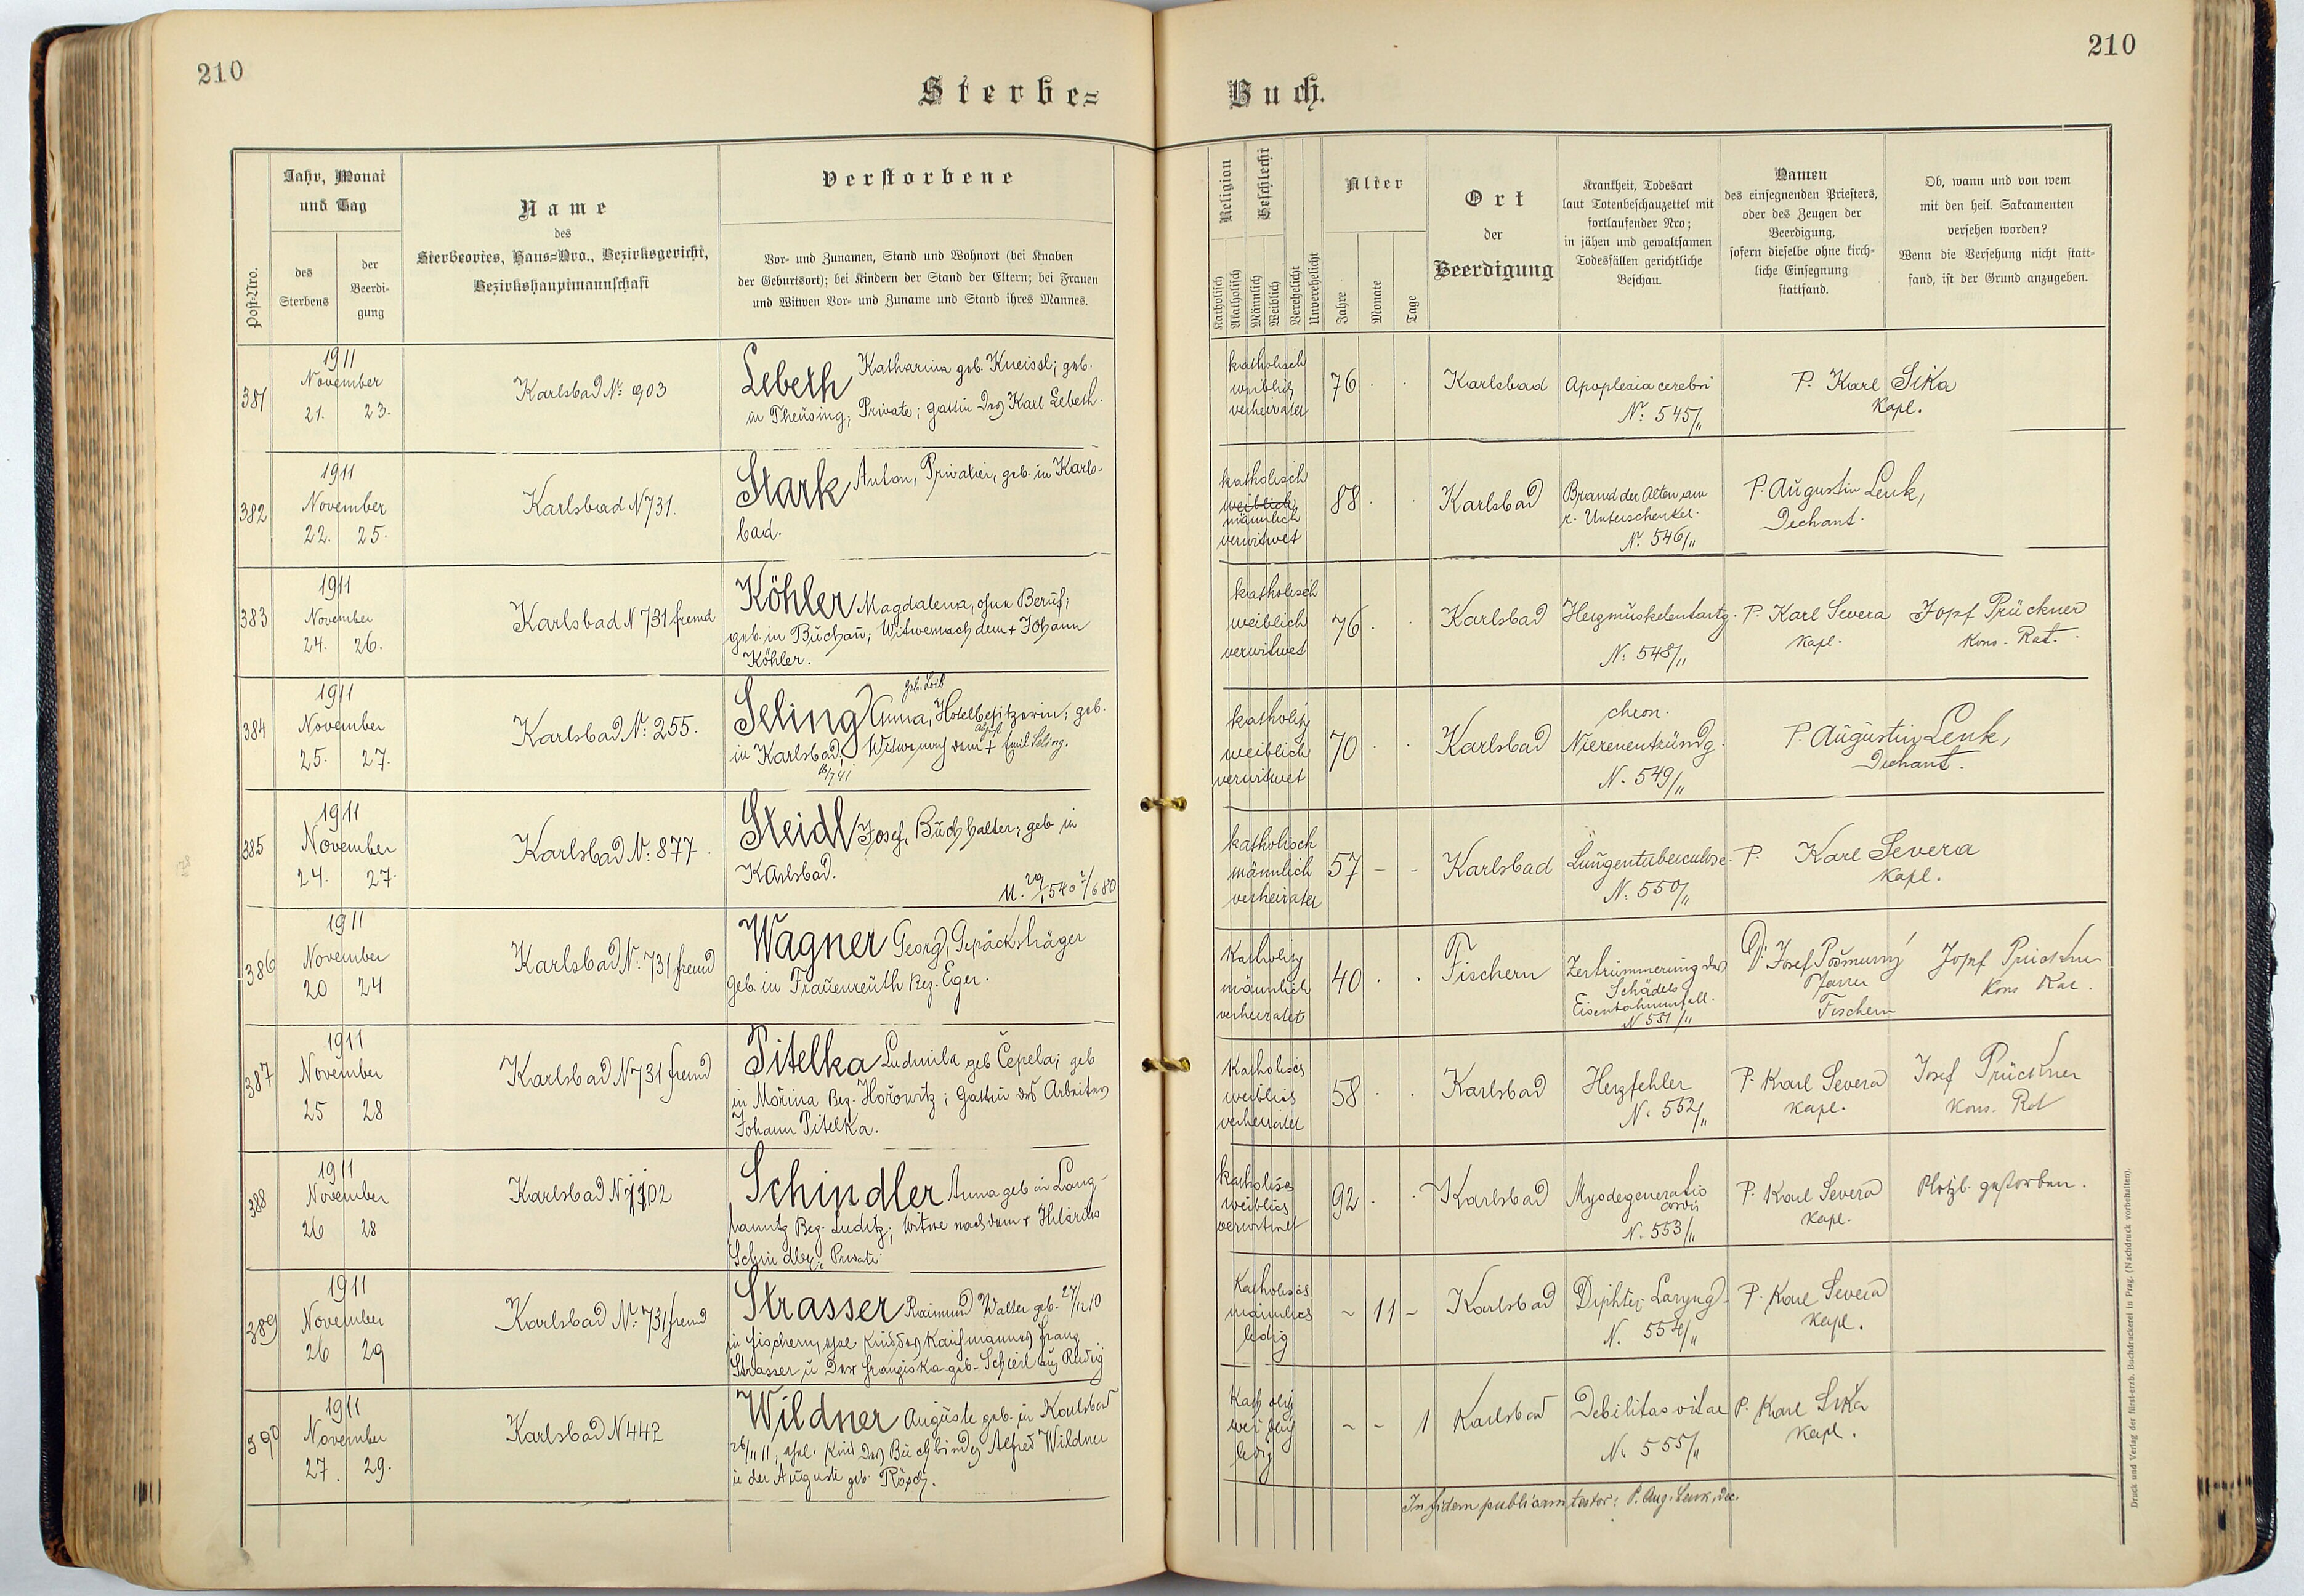 210
210
Sterbe=
Buch.
Post-Nro.
Jahr, Monat
und Tag
des
Sterbens
der
Beerdi-
gung
Name
des
Sterbeortes, Haus=Nro., Bezirksgericht,
Bezirkshauptmannschaft
Verstorbene
Vor- und Zunamen, Stand und Wohnort (bei Knaben
der Geburtsort); bei Kindern der Stand der Eltern; bei Frauen
und Witwen Vor- und Zuname und Stand ihres Mannes.
Religion
Katholisch
Akatholisch
Geschlecht
Männlich
Weiblich
Verehelicht
Unverehelicht
Alter
Jahre
Monate
Tage
Ort
der
Beerdigung
Krankheit, Todesart
laut Totenbeschauzettel mit
fortlaufender Nro;
in jähen und gewaltsamen
Todesfällen gerichtliche
Beschau.
Namen
des einsegnenden Priesters,
oder des Zeugen der
Beerdigung,
sofern dieselbe ohne kirch-
liche Einsegnung
stattfand.
Ob, wann und von wem
mit den heil. Sakramenten
versehen worden?
Wenn die Versehung nicht statt-
fand, ist der Grund anzugeben.
381
1911
November
21. 23.
Karlsbad Nº 903
Lebeth Katharina geb. Kneissl; geb.
in Theusing; Private; Gattin des Karl Lebeth.
katholisch
weiblich
verheiratet
76
Karlsbad
Apoplexia cerebri
Nº 545/11
P. Karl Sika
Kapl.
382
1911
November
22. 25.
Karlsbad N 731.
Stark Anton, Privatier, geb. in Karls-
bad.
katholisch
weiblich
männlich
verwitwet
88
Karlsbad
Brand der Alten am
r. Unterschenkel.
Nº 546/11
P. Augustin Lenk,
Dechant.
383
1911
November
24. 26.
Karlsbad N 731 fremd
Köhler Magdalena, ohne Beruf;
geb. in Buchau; Witwe nach dem + Johann
Köhler.
katholisch
weiblich
verwitwet
76
Karlsbad
Herzmuskelentartg.
N: 548/11
P. Karl Severa
Kapl.
Josef Prückner
Kons. Rat.
384
1911
November
25. 27.
Karlsbad Nº 255.
geb. Loib
Seling Anna, Hotelbesitzerin; geb.
August
in Karlsbad; Witwe nach dem + Emil Seling.
katholisch
weiblich
verwitwet
70
Karlsbad
chron.
Nierenentzündg.
N. 549/11
P. Augustin Lenk,
Dechant.
385
1911
November
24. 27.
Karlsbad Nº 877.
Steidl Josef, Buchhalter; geb. in
Karlsbad.
katholisch
männlich
verheiratet
57 - -
Karlsbad
Lungentuberculose.
N: 550/11
P. Karl Severa
Kapl.
386
1911
November
20 24
Karlsbad Nº 731 fremd
Wagner Georg, Gepäcksträger
geb. in Frauenreuth Bez. Eger.
katholisch
männlich
verheiratet
40
Fischern
Zertrümmerung des
Schädels
Eisenbahnunfall.
N 551/11
Pfarrer
Fischern
Josef Prückner
Kons Rat.
387
1911
November
25 28
Karlsbad N 731 fremd
Pitelka Ludmila geb Čepela; geb
in Mořina Bez. Hořowitz; Gattin des Arbeiters
Johann Pitelka.
katholisch
weiblich
verheiratet
58
Karlsbad
Herzfehler
N: 552/11
P. Karl Severa
Kapl.
Josef Prückner
Kons. Rat
388
1911
November
26 28
Karlsbad N 1102
Schindler Anna geb in Lang-
lamitz Bez. Luditz; Witwe nach dem + Hilarius
Schindler; Private
katholisch
weiblich
verwitwet
92
Karlsbad
Myodegeneratio
cordis
N. 553/11
P. Karl Severa
Kapl.
Plötzl. gestorben.
389
1911
November
26 29
Karlsbad Nº 731 fremd
Strasser Raimund Walter geb. 27/12 10
in Fischern, ehel. Kind des Kaufmannes Franz
Strasser u. der Franziska geb. Scheitl aus Rudig
katholisch
männlich
ledig
- 11 -
Karlsbad
Diphter. Laryng.
N. 554/11
P. Karl Severa
Kapl.
390
1911
November
27. 29.
Karlsbad N 442
Wildner Auguste geb. in Karlsbad
26/11 11, ehel. Kind des Buchbinders Alfred Wildner
u der Auguste geb. Rösch.
katholisch
weiblich
ledig
- - 1
Karlsbad
Debilitas vitae
N. 555/11
P. Karl Sika
Kapl.
In fidem publicam testor: P. Aug. Lenk, Dec.
Druck und Verlag der fürst-erzb. Buchdruckerei in Prag. (Nachdruck vorbehalten).